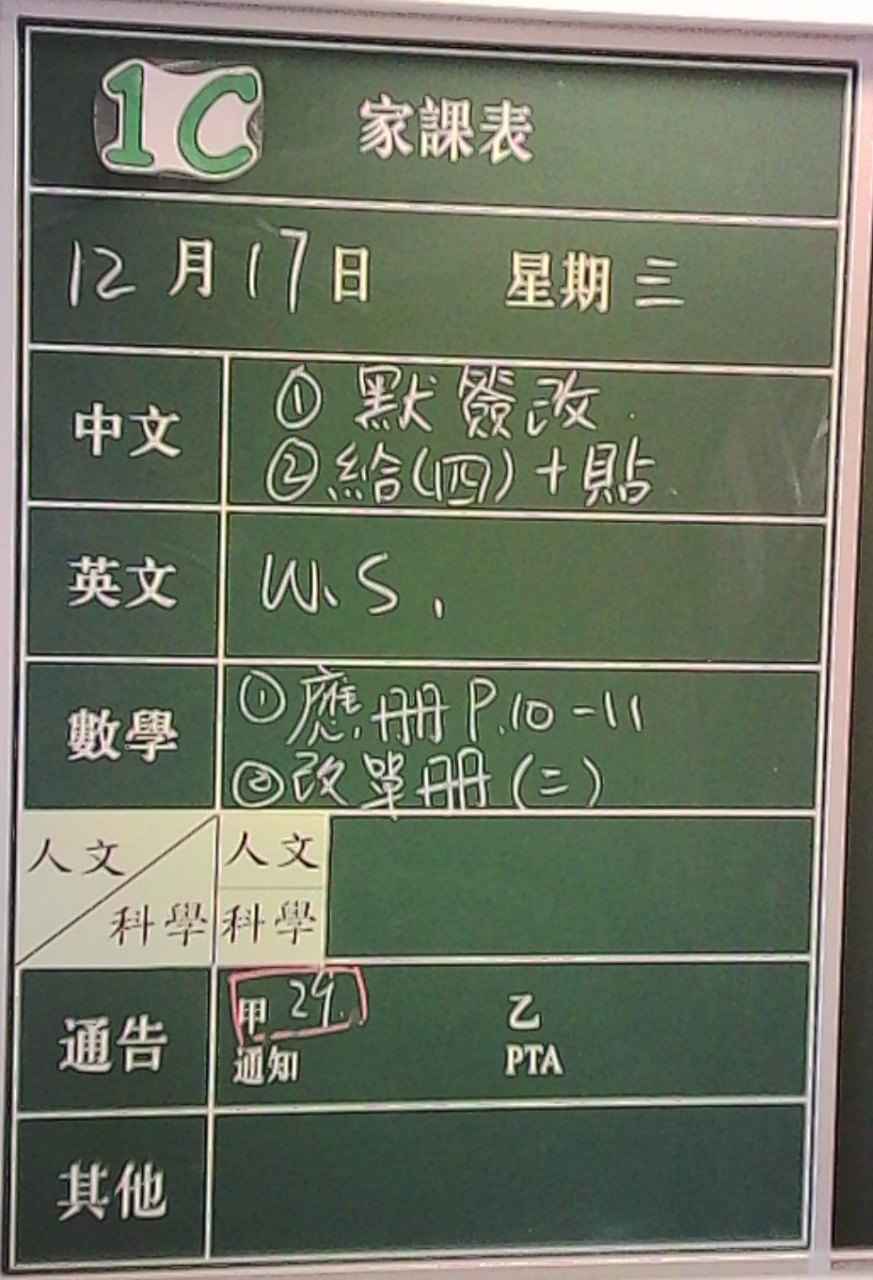 1C 家課表
12月17日 星期三
中文
① 默簽改.
② 給(四)+貼.
英文
W.S.
數學
① 應.冊 P.10-11
② 改單冊(二)
人文 人文
科學 科學
通告
甲 29. 乙
通知 PTA
其他